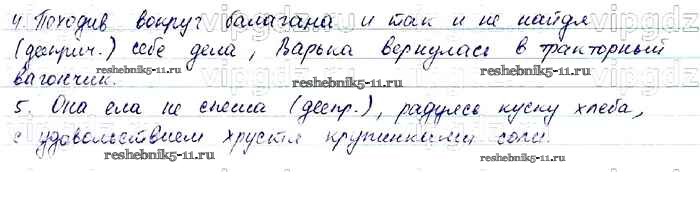 4. Походив вокруг балагана и так и не найдя
(дееприч.) себе дела, Варька вернулась в тракторный
вагончик.
reshebnik5-11.ru reshebnik5-11.ru
5. Она ела не спеша (деепр.), радуясь куску хлеба,
с удовольствием хрустя крупинками соли.
reshebnik5-11.ru reshebnik5-11.ru